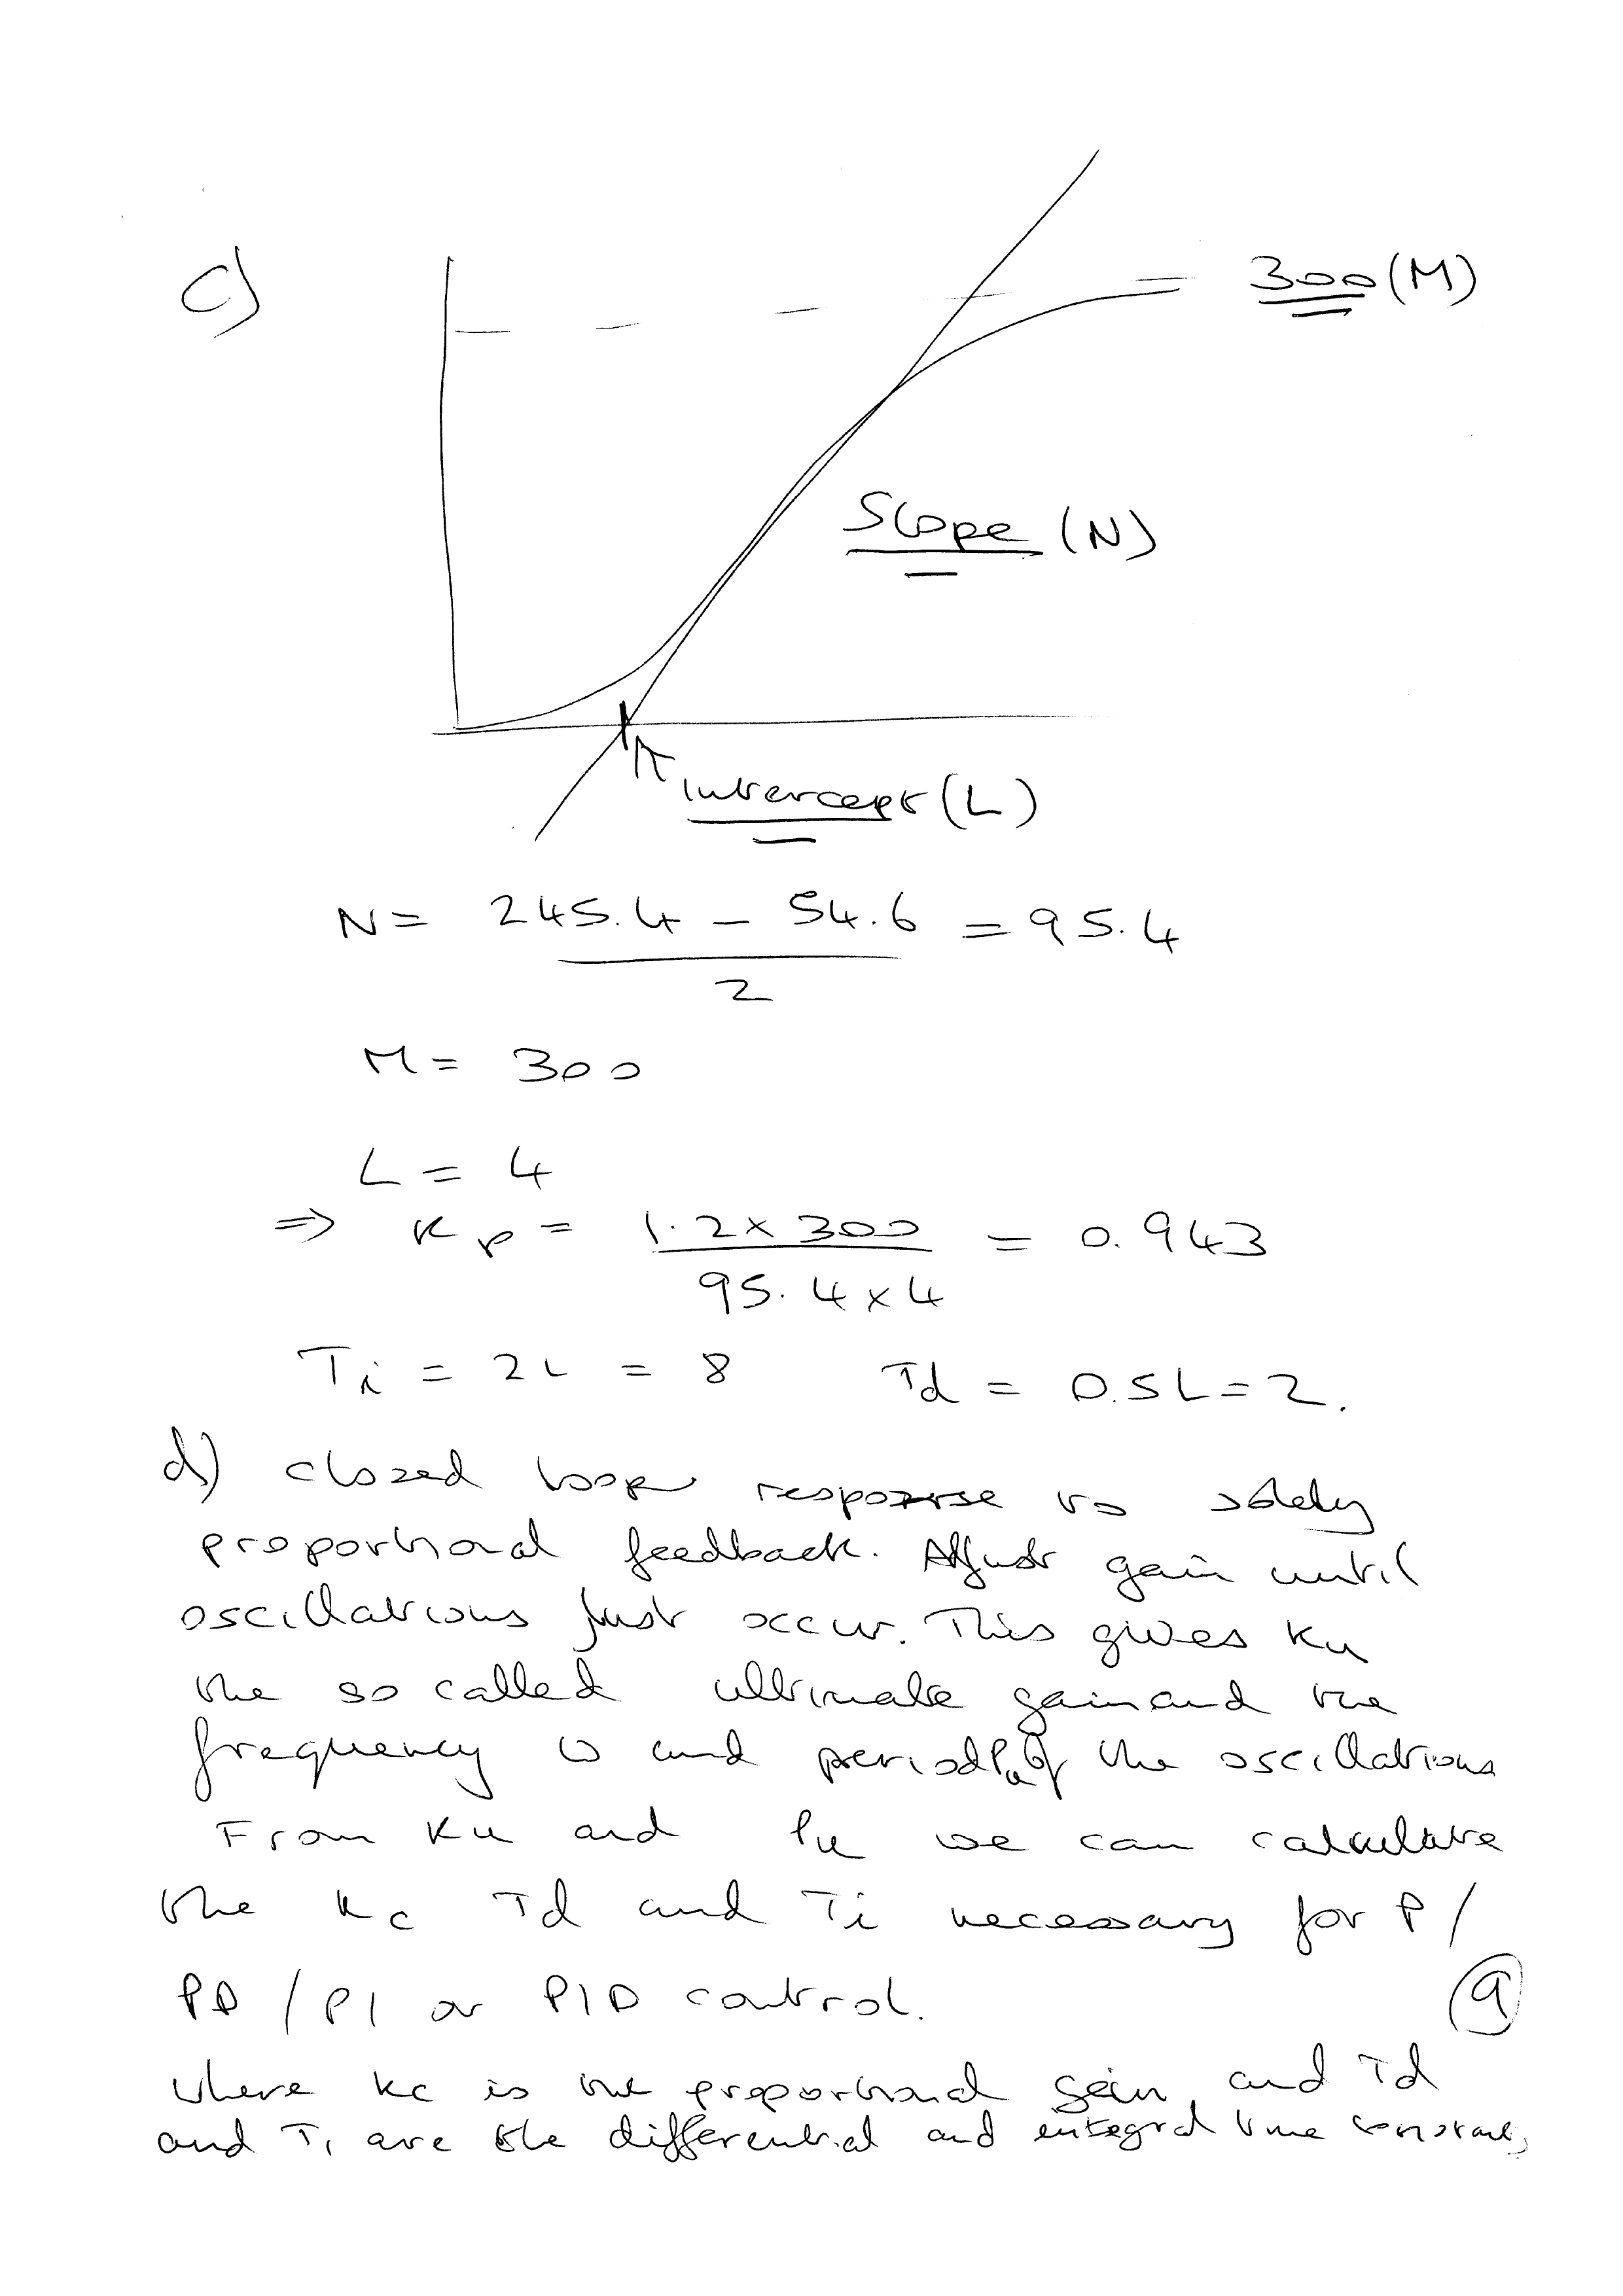 c)
300 (M)
Slope (N)
Intercept (L)
N = 245.4 - 54.6 = 95.4
2
M = 300
L = 4
⇒ Kp = 1.2 x 300 = 0.943
95.4 x 4
Ti = 2L = 8 Td = 0.5L = 2.
d) closed loop response to solely
proportional feedback. Adjust gain until
oscillations just occur. This gives Ku
the so called ultimate gain and the
frequency ω and period Pu of the oscillations
From Ku and Pu we can calculate
the Kc Td and Ti necessary for P/
PD / PI or PID control.
9
where Kc is the proportional gain, and Td
and Ti are the differential and integral time constants